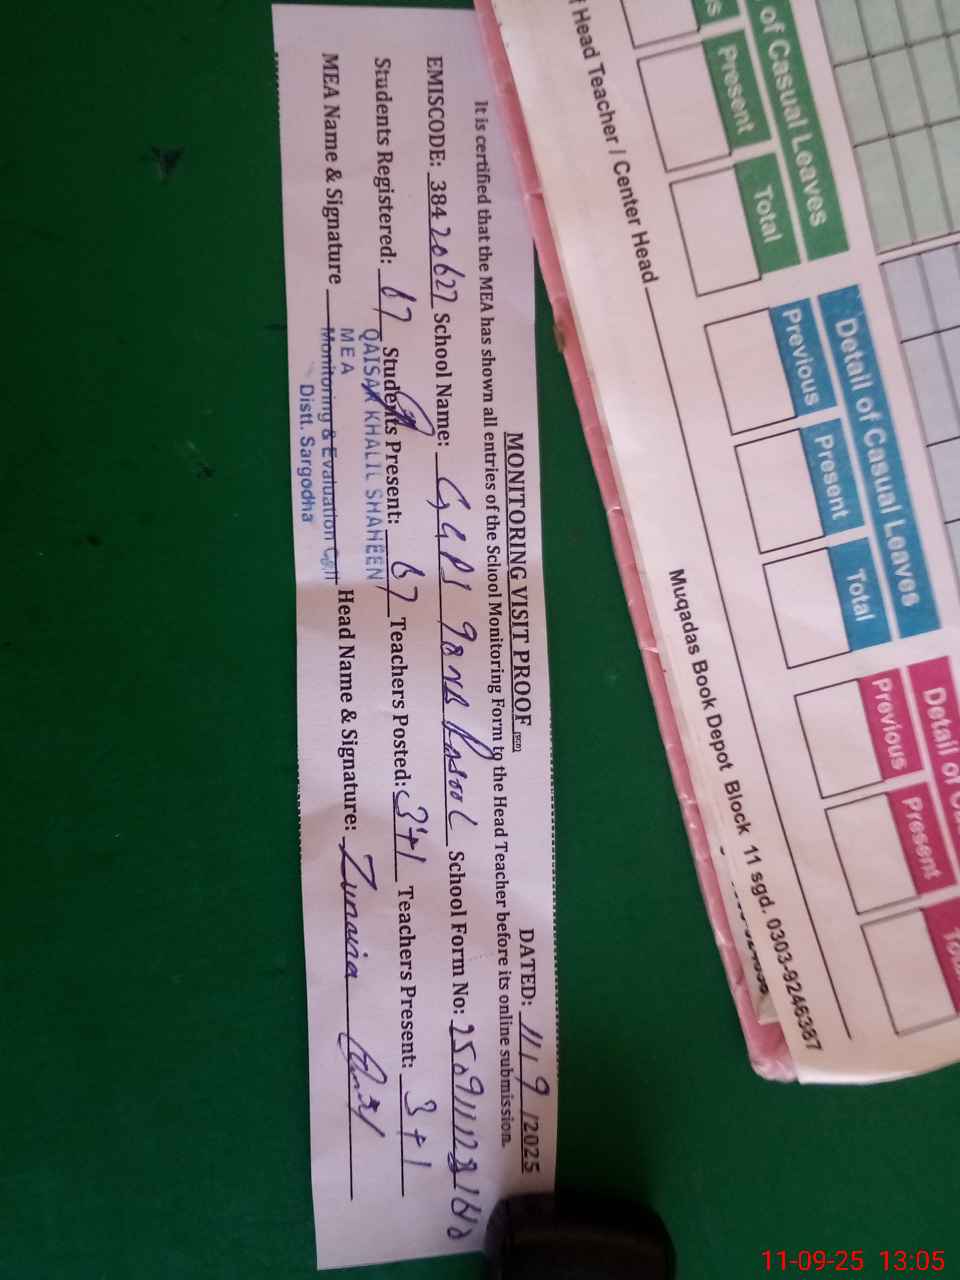 MONITORING VISIT PROOF
DATED: 11/9/2025
It is certified that the MEA has shown all entries of the School Monitoring Form to the Head Teacher before its online submission.
EMISCODE: 38420627 School Name: GGPS 98 NB Rasool School Form No:
Students Registered: 67 Students Present: 67 Teachers Posted: 3+1 Teachers Present: 3+1
MEA Name & Signature Head Name & Signature: Zunaira
QAISAR KHALIL SHAHEEN
MEA
Monitoring & Evaluation Cell
Distt. Sargodha
of Casual Leaves
Present Total
Detail of Casual Leaves
Previous Present Total
Detail of
Previous Present
Head Teacher / Center Head
Muqadas Book Depot Block 11 sgd. 0303-9246387
11-09-25 13:05